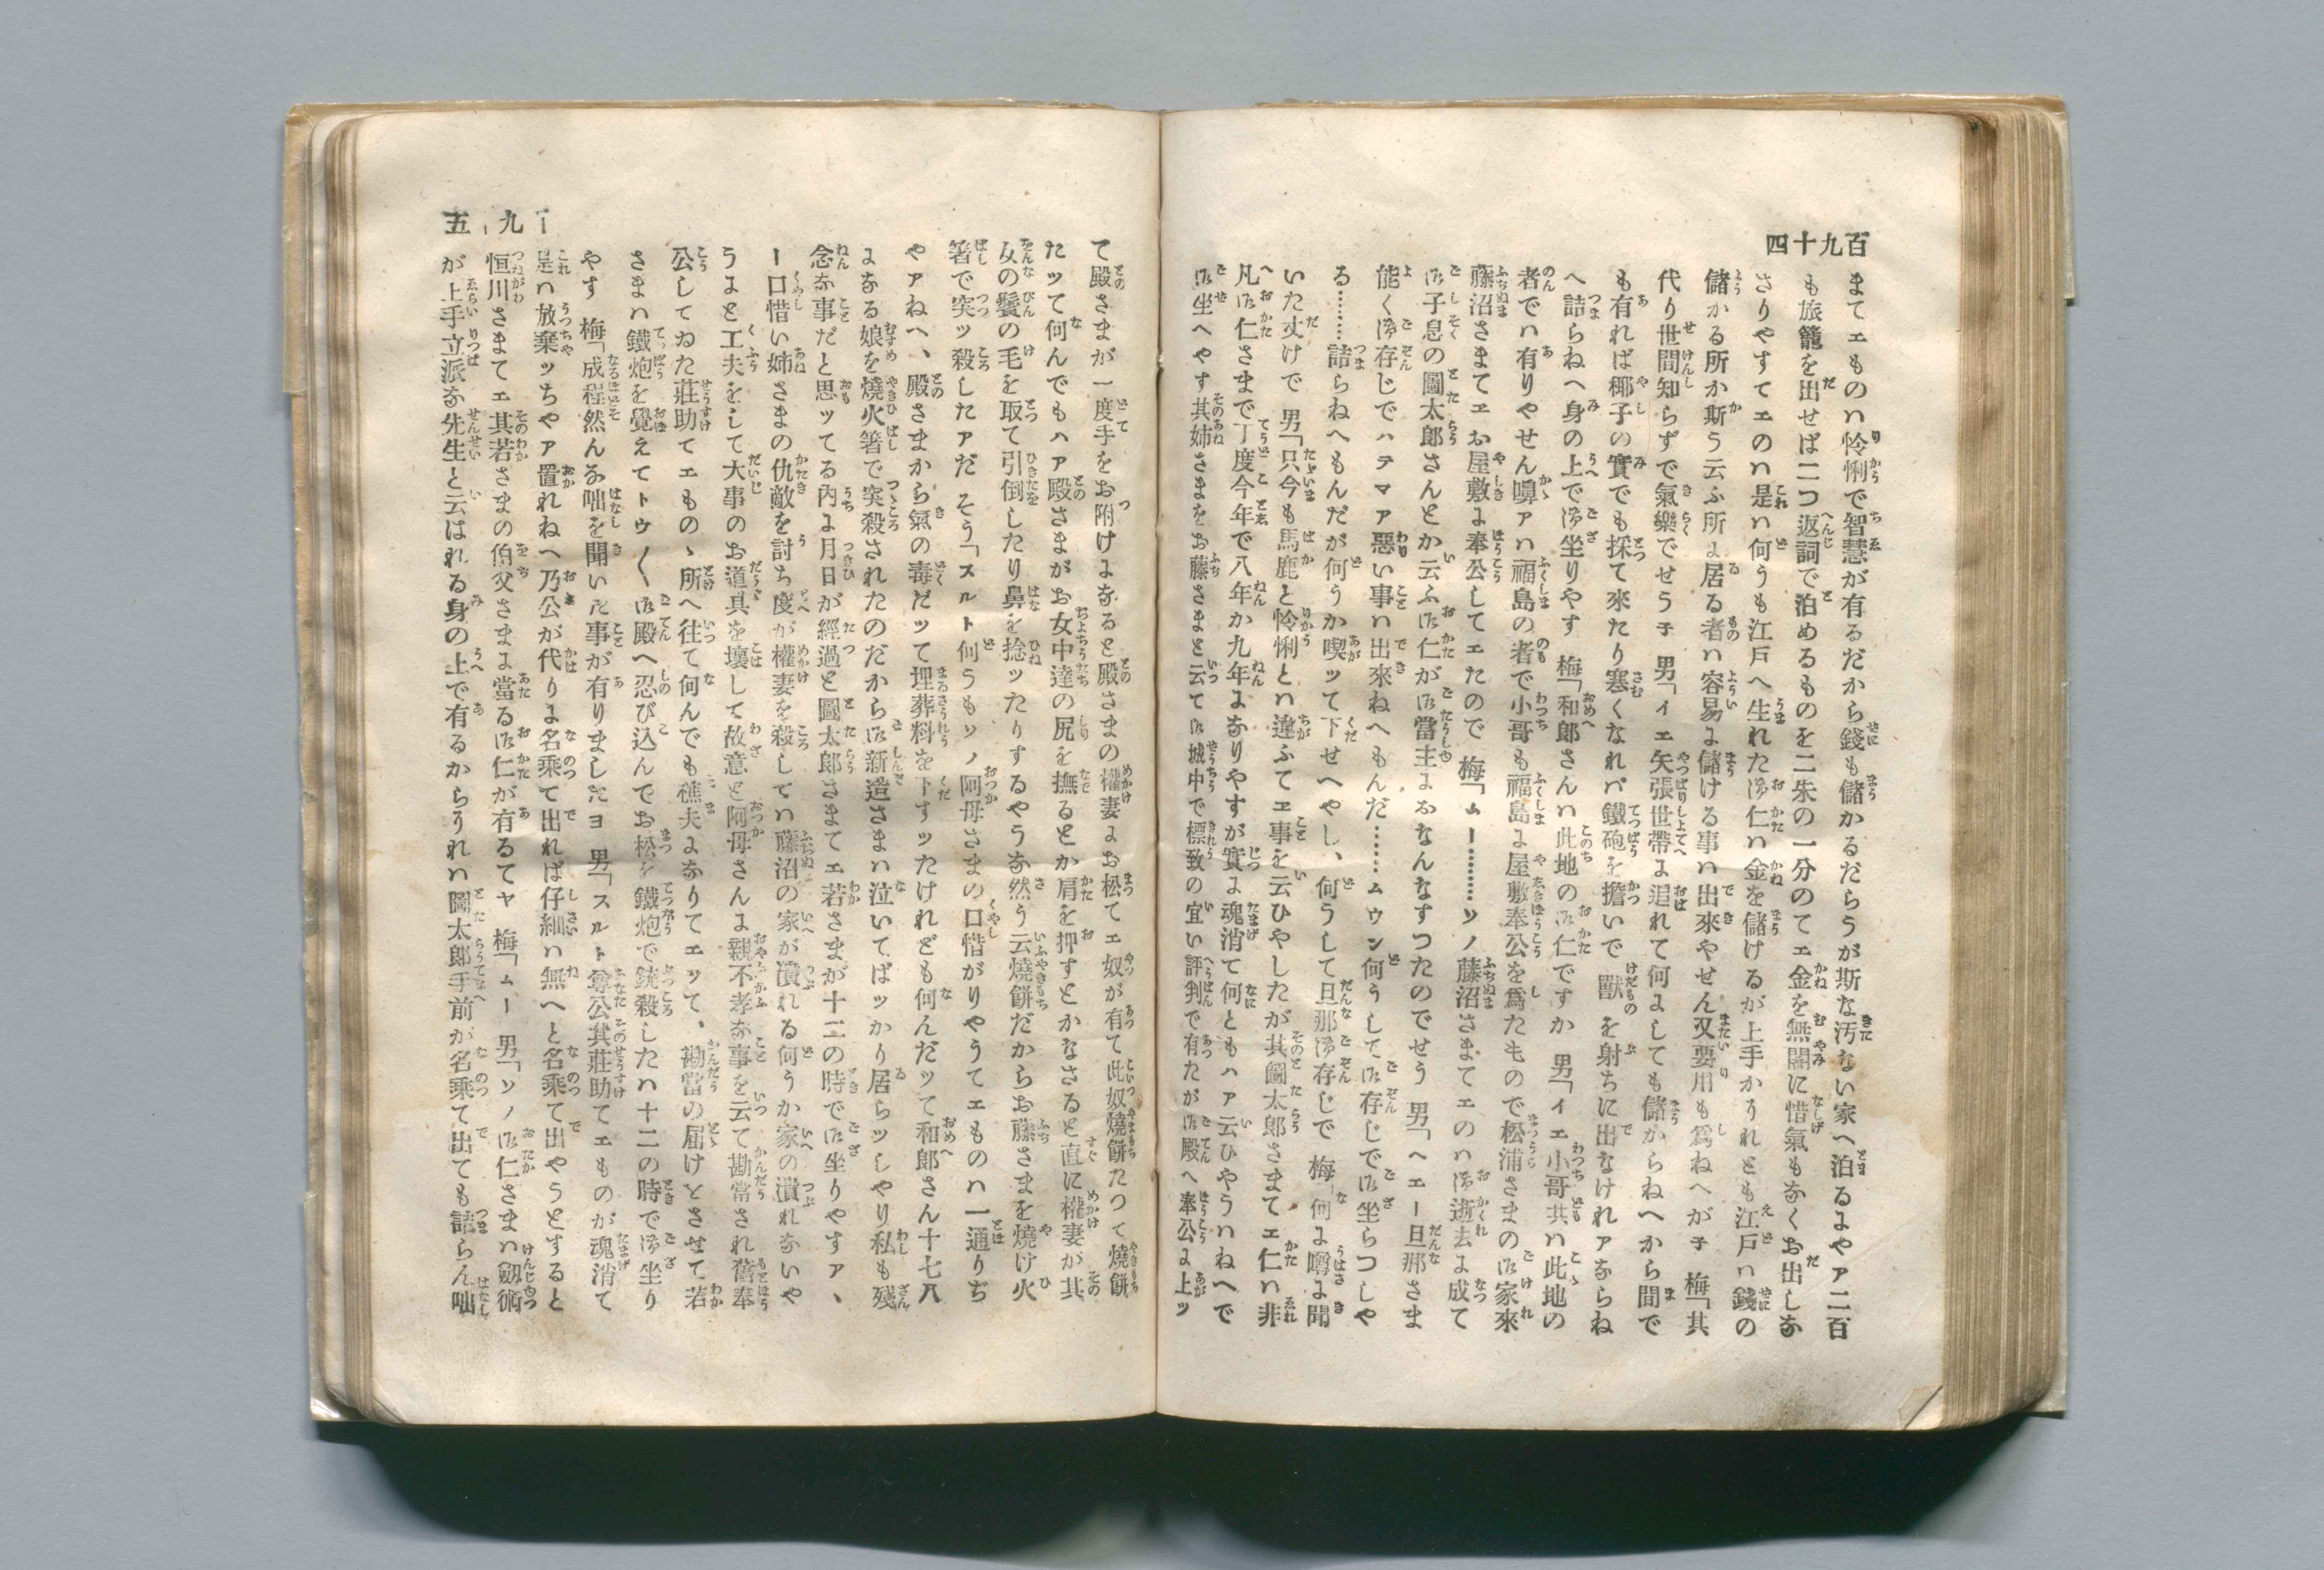 百九十四
まてエものハ怜悧で智慧が有るだから錢も儲かるだらうが斯な汚ない家へ泊るよやア二百
も旅籠を出せば二つ返詞で泊めるものを二朱の一分のてエ金を無闇に惜氣もなくお出しな
さりやすてエのハ是ハ何うも江戸へ生れた御仁ハ金を儲けるが上手かうれとも江戸ハ錢の
儲かる所か斯う云ふ所よ居る者ハ容易よ儲ける事ハ出來やせん又要用も爲ねへが子 梅「其
代り世間知らずで氣樂でせう子 男「イエ矢張世帶よ追れて何よしても儲からねへから間で
も有れば椰子の實でも採て來たり寒くなれバ鐵砲を擔いで 獸を射ちに出なけれアならね
へ詰らねへ身の上で御坐りやす 梅「和郎さんハ此地の御仁ですか 男「イエ小哥共ハ此地の
者でハ有りやせん嚊アハ福島の者で小哥も福島よ屋敷奉公を爲たもので松浦さまの御家來
藤沼さまてエお屋敷よ奉公してエたので 梅「ムー………ソノ藤沼さまてエのハ御逝去よ成て
御子息の圖太郎さんとか云ふ御仁が御當主よおなんなすつたのでせう 男「ヘエー旦那さま
能く御存じでハテマア惡い事ハ出來ねへもんだ……ムウン何うして御存じで御坐らつしや
る………詰らねへもんだが何うか喫ッて下せへやし、何うして旦那御存じで 梅「何よ噂よ聞
いた丈けで 男「只今も馬鹿と怜悧とハ違ふてエ事を云ひやしたが其圖太郎さまてエ仁ハ非
凡御仁さまで丁度今年で八年か九年よなりやすが實よ魂消て何ともハア云ひやうハねへで
御坐へやす其姉さまをお藤さまと云て御城中で標致の宜い評判で有たが御殿へ奉公よ上ッ
五九一
て殿さまが一度手をお附けよなると殿さまの權妻よお松てエ奴が有て此奴燒餅たつて燒餅
たッて何んでもハア殿さまがお女中達の尻を撫るとか肩を押すとかなさると直に權妻が其
女の鬢の毛を取て引倒したり鼻を捻ッたりするやうな然う云燒餅だからお藤さまを燒け火
箸で突ッ殺したアだ そう「スルト何うもソノ阿母さまの口惜がりやうてエものハ一通りぢ
やアねへ、殿さまから氣の毒だッて埋葬料を下すッたけれども何んだッて和郎さん十七八
よなる娘を燒火箸で突殺されたのだから御新造さまハ泣いてばッかり居らッしやり私も殘
念な事だと思ッてる内よ月日が經過と圖太郎さまてエ若さまが十二の時で御坐りやすア、
ー口惜い姉さまの仇敵を討ち度が權妻を殺してハ藤沼の家が潰れる何うか家の潰れないや
うよと工夫をして大事のお道具を壞して故意と阿母さんよ親不孝な事を云て勘當され舊奉
公してゐた莊助てエものゝ所へ往て何んでも樵夫よなりてエッて、勘當の届けとさせて若
さまハ鐵炮を覺えてトウ〱御殿へ忍び込んでお松を鐵炮で銃殺したハ十二の時で御坐り
やす 梅「成程然んな咄を聞いた事が有りましたヨ 男「スルト尊公其莊助てエものが魂消て
是ハ放棄ッちやア置れねへ乃公が代りよ名乘て出れば仔細ハ無へと名乘て出やうとすると
恒川さまてエ其若さまの伯父さまよ當る御仁が有るてヤ 梅「ムー 男「ソノ御仁さまハ劔術
が上手立派な先生と云はれる身の上で有るからうれハ圖太郎手前が名乘て出ても詰らん咄